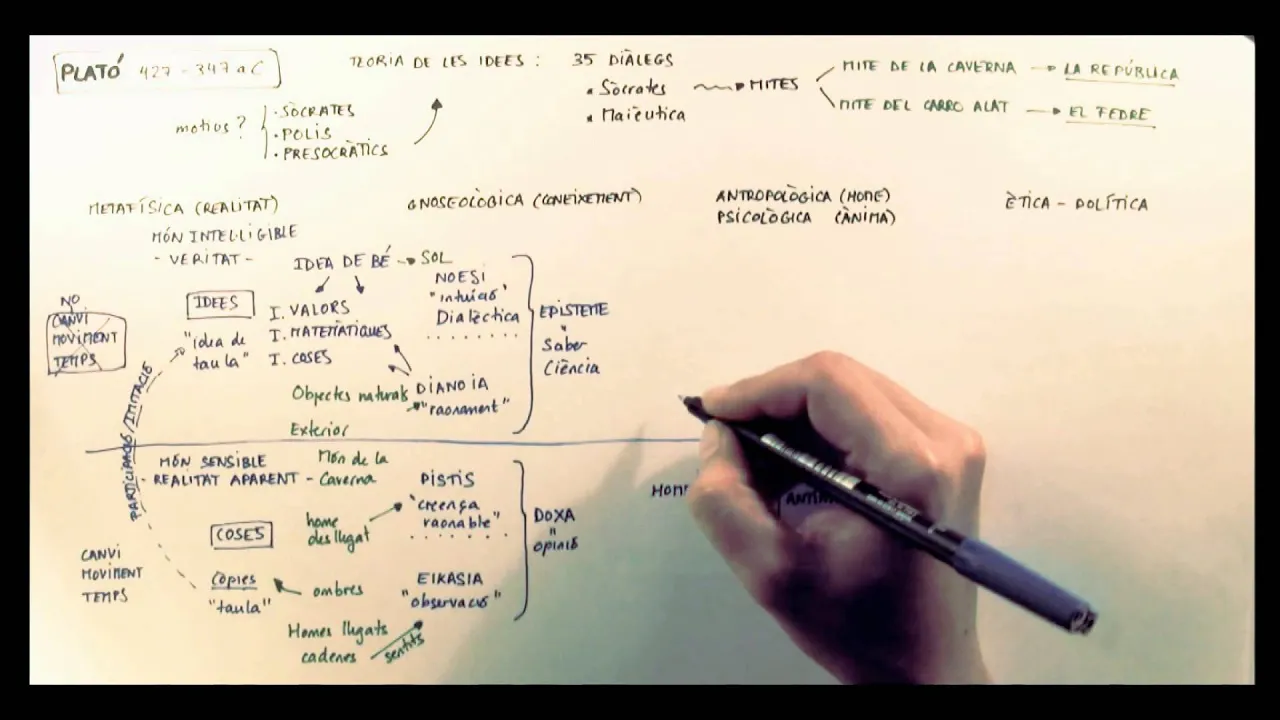 PLATÓ 427 - 347 aC
TEORIA DE LES IDEES : 35 DIÀLEGS
• Sòcrates
• Maièutica
MITES
MITE DE LA CAVERNA → LA REPÚBLICA
MITE DEL CARRO ALAT → EL FEDRE
motius?
· SÒCRATES
· POLIS
· PRESOCRÀTICS
METAFÍSICA (REALITAT)
GNOSEOLÒGICA (CONEIXEMENT)
ANTROPOLÒGICA (HOME)
PSICOLÒGICA (ÀNIMA)
ÈTICA - POLÍTICA
MÓN INTEL·LIGIBLE
- VERITAT -
IDEA DE BÉ → SOL
NO
CANVI
MOVIMENT
TEMPS
IDEES
"idea de
taula"
I. VALORS
I. MATEMÀTIQUES
I. COSES
NOESI
"intuició"
Dialèctica
........
EPISTEME
"
Saber
Ciència
Objectes naturals
DIANOIA
"raonament"
Exterior
PARTICIPACIÓ/IMITACIÓ
MÓN SENSIBLE
- REALITAT APARENT -
Món de la
Caverna
COSES
home
deslligat
PISTIS
"creença
raonable"
........
DOXA
"
opinió
CANVI
MOVIMENT
TEMPS
Còpies
"taula"
ombres
EIKASIA
"observació"
Homes lligats
cadenes
sentits